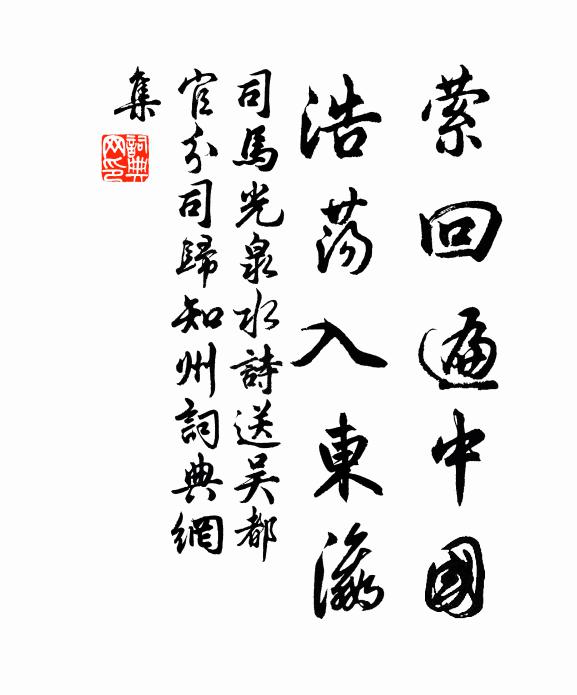 萦回遍中國
浩荡入東瀛
司馬光泉水詩送吴都
官分司歸知州詞典網
集
詞典
网印